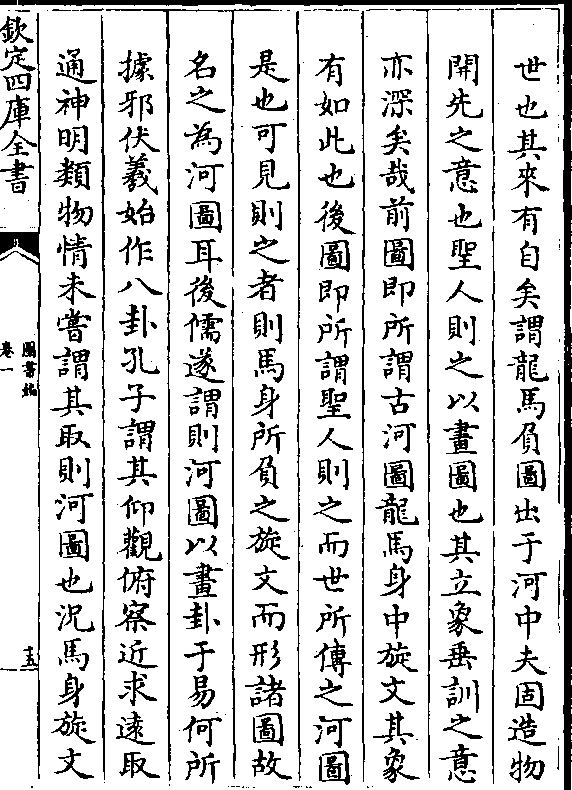 世也其來有自矣謂龍馬負圖出于河中夫固造物
開先之意也聖人則之以畫圖也其立象垂訓之意
亦深矣哉前圖即所謂古河圖龍馬身中旋文其象
有如此也後圖即所謂聖人則之而世所傳之河圖
是也可見則之者則馬身所負之旋文而形諸圖故
名之為河圖耳後儒遂謂則河圖以畫卦于易何所
據邪伏羲始作八卦孔子謂其仰觀俯察近求遠取
通神明類物情未嘗謂其取則河圖也況馬身旋文
欽定四庫全書
圖書編
卷一
十五